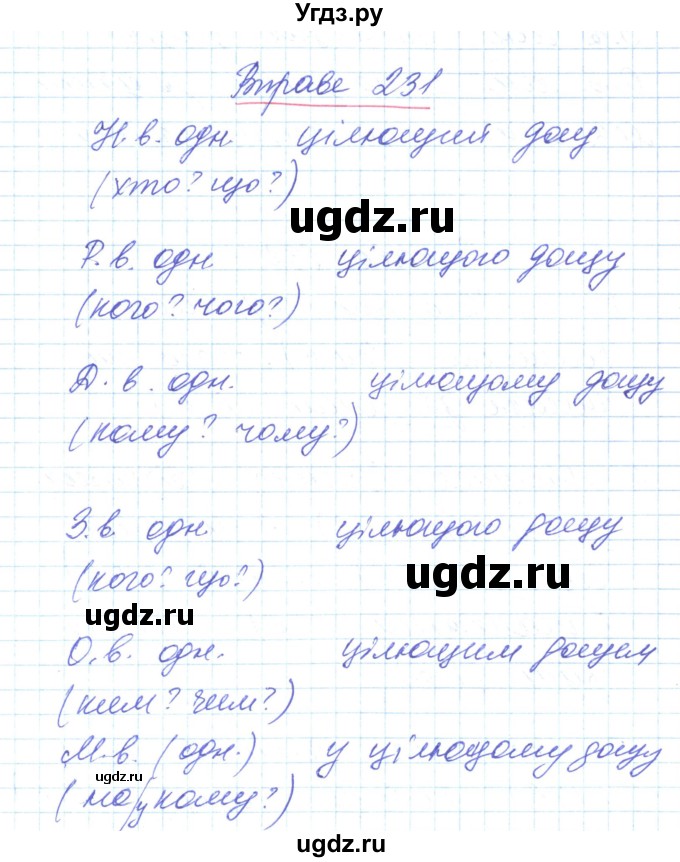 Угдз.ру
Вправе 231
Н.в. одн цілющий дощ
(хто? що?)
ugdz.ru
Р.в. одн цілющого дощу
(кого? чого?)
Д.в. одн. цілющому дощу
(кому? чому?)
З.в. одн цілющого дощу
(кого? що?)
ugdz.ru
ugdz.ru
О.в. одн. цілющим дощем
(ким? чим?)
М.в. (одн.) у цілющому дощу
ugdz.ru
(на/у кому?)
ugdz.ru